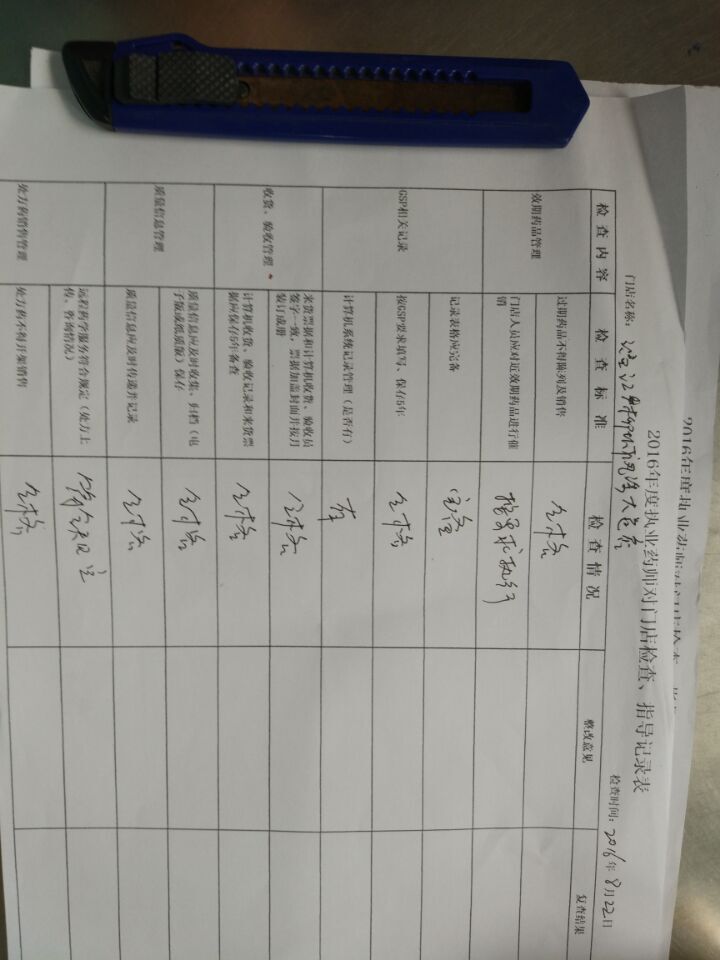 2016年度执业药师对门店检查、指导记录表
门店名称：
检查时间：2016年8月22日
检查内容 检查标准 检查情况 整改意见 复查结果
效期药品管理
过期药品不得陈列及销售 合格
门店人员应对近效期药品进行催
销
按要求执行
GSP相关记录
记录表格应完备 完备
按GSP要求填写、保存5年 合格
计算机系统记录管理（是否有） 有
收货、验收管理
来货票据和计算机收货、验收员
签字一致，票据加盖封面并按月
装订成册
合格
计算机收货、验收记录和来货票
据应保存5年备查
合格
质量信息管理
质量信息应及时收集、归档（电
子版或纸质版）保存
合格
质量信息应及时传递并记录 合格
处方药销售管理
远程药学服务符合规定（处方上
传、咨询情况）
符合规定
处方药不得开架销售 合格